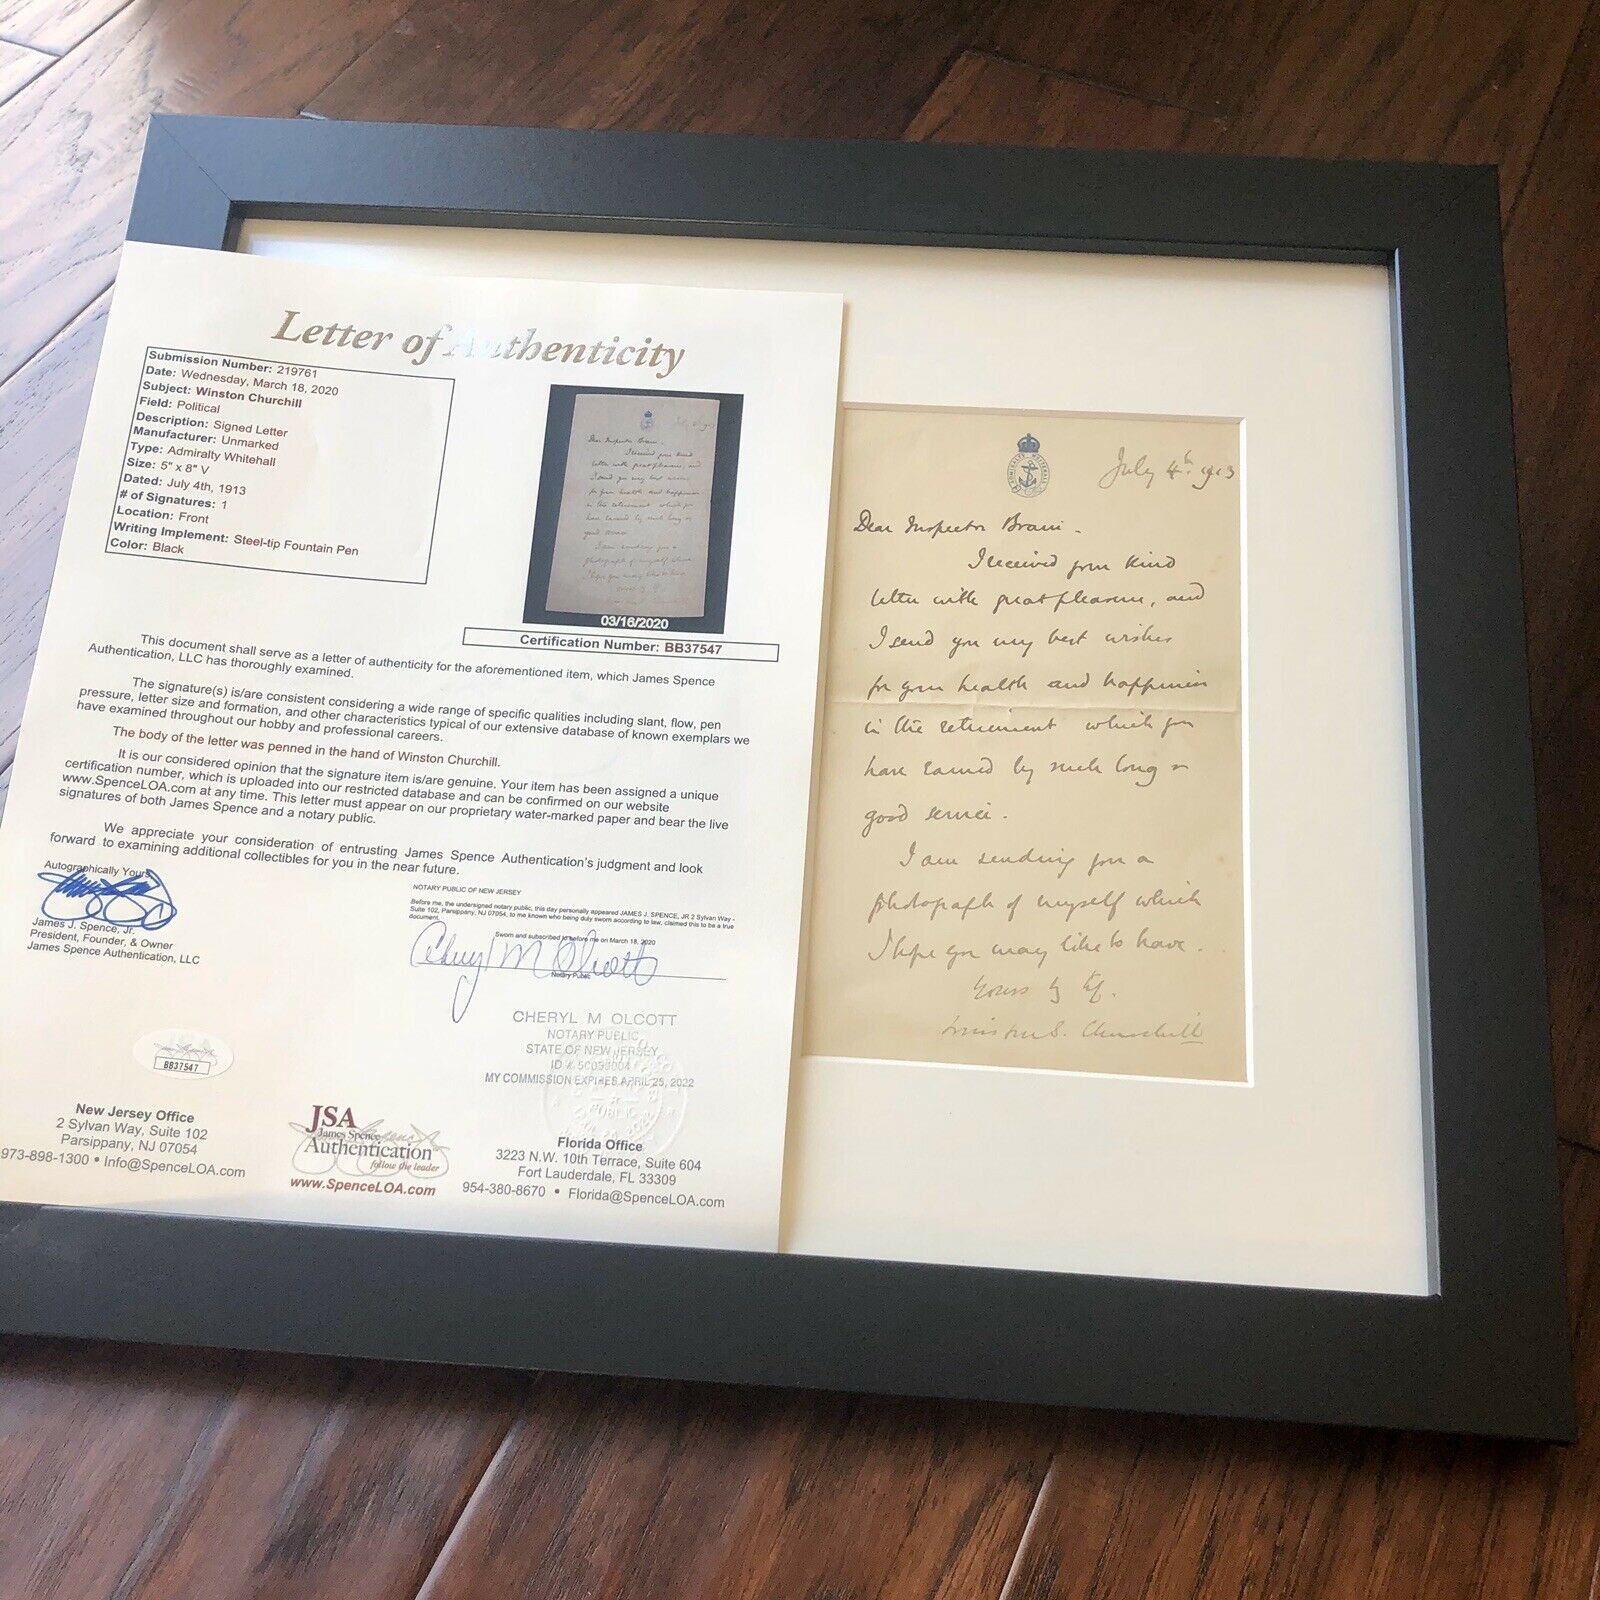 Letter of Authenticity
Submission Number: 219761
Date: Wednesday, March 18, 2020
Subject: Winston Churchill
Field: Political
Description: Signed Letter
Manufacturer: Unmarked
Type: Admiralty Whitehall
Size: 5" x 8" V
Dated: July 4th, 1913
# of Signatures: 1
Location: Front
Writing Implement: Steel-tip Fountain Pen
Color: Black
03/16/2020
Certification Number: BB37547
This document shall serve as a letter of authenticity for the aforementioned item, which James Spence
Authentication, LLC has thoroughly examined.
The signature(s) is/are consistent considering a wide range of specific qualities including slant, flow, pen
pressure, letter size and formation, and other characteristics typical of our extensive database of known exemplars we
have examined throughout our hobby and professional careers.
The body of the letter was penned in the hand of Winston Churchill.
It is our considered opinion that the signature item is/are genuine. Your item has been assigned a unique
certification number, which is uploaded into our restricted database and can be confirmed on our website
www.SpenceLOA.com at any time. This letter must appear on our proprietary water-marked paper and bear the live
signatures of both James Spence and a notary public.
We appreciate your consideration of entrusting James Spence Authentication's judgment and look
forward to examining additional collectibles for you in the near future.
Autographically Yours,
James J. Spence, Jr.
President, Founder, & Owner
James Spence Authentication, LLC
NOTARY PUBLIC OF NEW JERSEY
Before me, the undersigned notary public, this day personally appeared JAMES J. SPENCE, JR 2 Sylvan Way -
Suite 102, Parsippany, NJ 07054, to me known who being duly sworn according to law, claimed this to be a true
document.
Sworn and subscribed to before me on March 18, 2020
Cheryl M Olcott
Notary Public
CHERYL M OLCOTT
NOTARY PUBLIC
STATE OF NEW JERSEY
ID # 50058004
MY COMMISSION EXPIRES APRIL 25, 2022
BB37547
New Jersey Office
2 Sylvan Way, Suite 102
Parsippany, NJ 07054
973-898-1300 • Info@SpenceLOA.com
JSA
James Spence
Authentication
follow the leader
www.SpenceLOA.com
Florida Office
3223 N.W. 10th Terrace, Suite 604
Fort Lauderdale, FL 33309
954-380-8670 • Florida@SpenceLOA.com
ADMIRALTY WHITEHALL
July 4th. 1913
Dear Inspector Brown -
I received your kind
letter with great pleasure, and
I send you my best wishes
for your health and happiness
in the retirement which you
have earned by such long &
good service.
I am sending you a
photograph of myself which
I hope you may like to have.
Yours
Winston S. Churchill